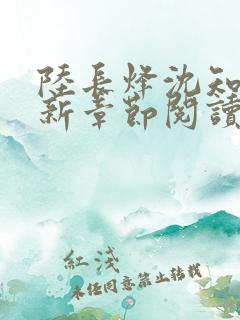 陸長烽沈知
新章節閱讀
紅淺
未經同意禁止轉載